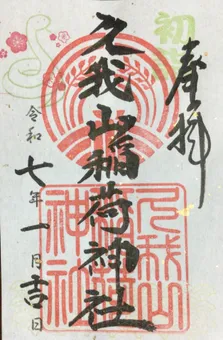 奉拝
初
久我山稲荷神社
令和七年一月吉日
久我山
稲荷
神社